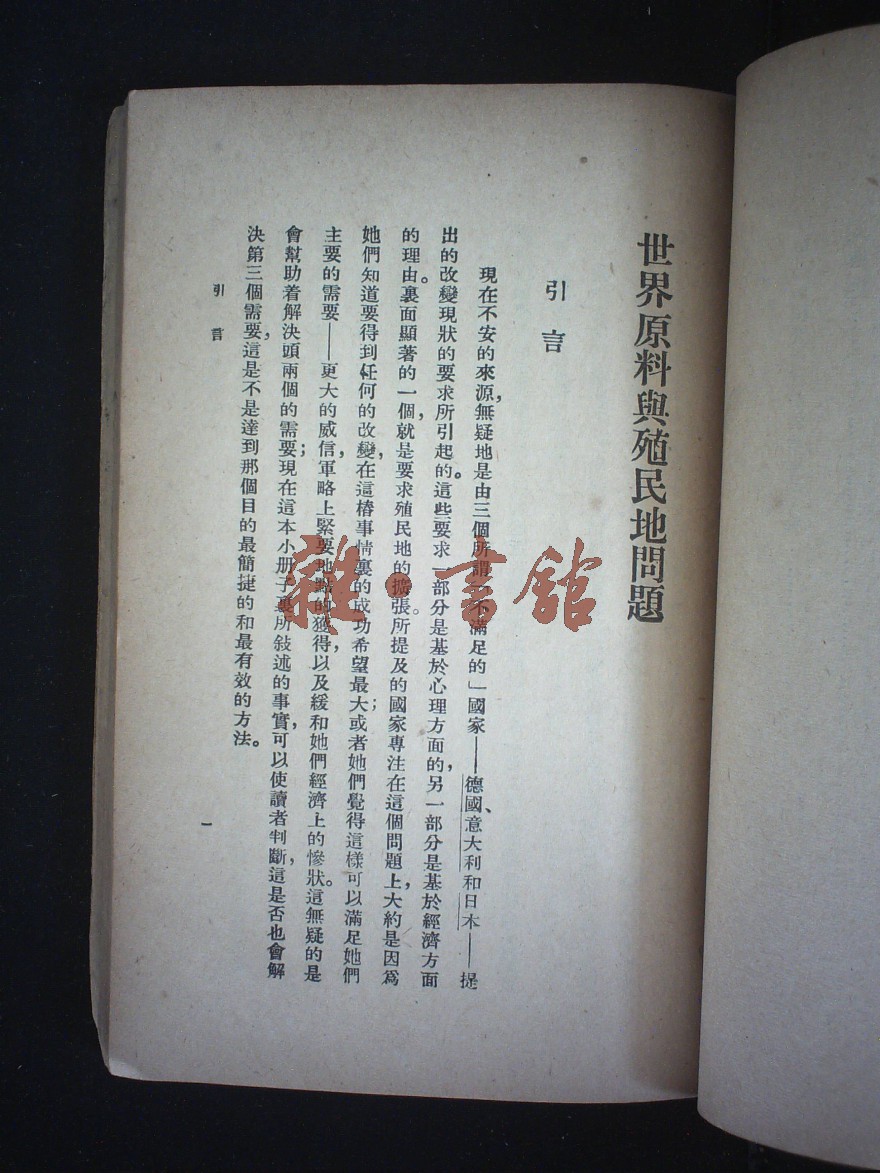 世界原料與殖民地問題
引言
現在不安的來源，無疑地是由三個所謂「不滿足的」國家——德國、意大利和日本——提
出的改變現狀的要求所引起的。這些要求一部分是基於心理方面的，另一部分是基於經濟方面
的理由。裏面顯著的一個，就是要求殖民地的擴張。所提及的國家專注在這個問題上，大約是因爲
她們知道要得到任何的改變，在這樁事情裏的成功希望最大；或者她們覺得這樣可以滿足她們
主要的需要——更大的威信，軍略上緊要地點的獲得，以及緩和她們經濟上的慘狀。這無疑的是
會幫助着解決頭兩個的需要；現在這本小册子裏所敍述的事實，可以使讀者判斷，這是否也會解
決第三個需要，這是不是達到那個目的最簡捷的和最有效的方法。
引言
一
雜·言館